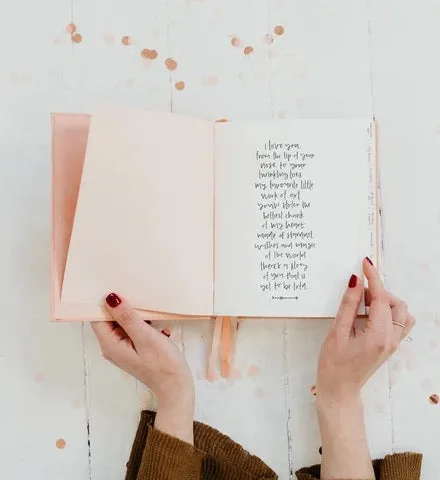 i love you
from the tip of your
nose to your
twinkling toes
my favourite little
work of art
you've stolen the
biggest chunk
of my heart
made of stardust
wishes and magic
of the world
there's a story
of you that is
yet to be told.